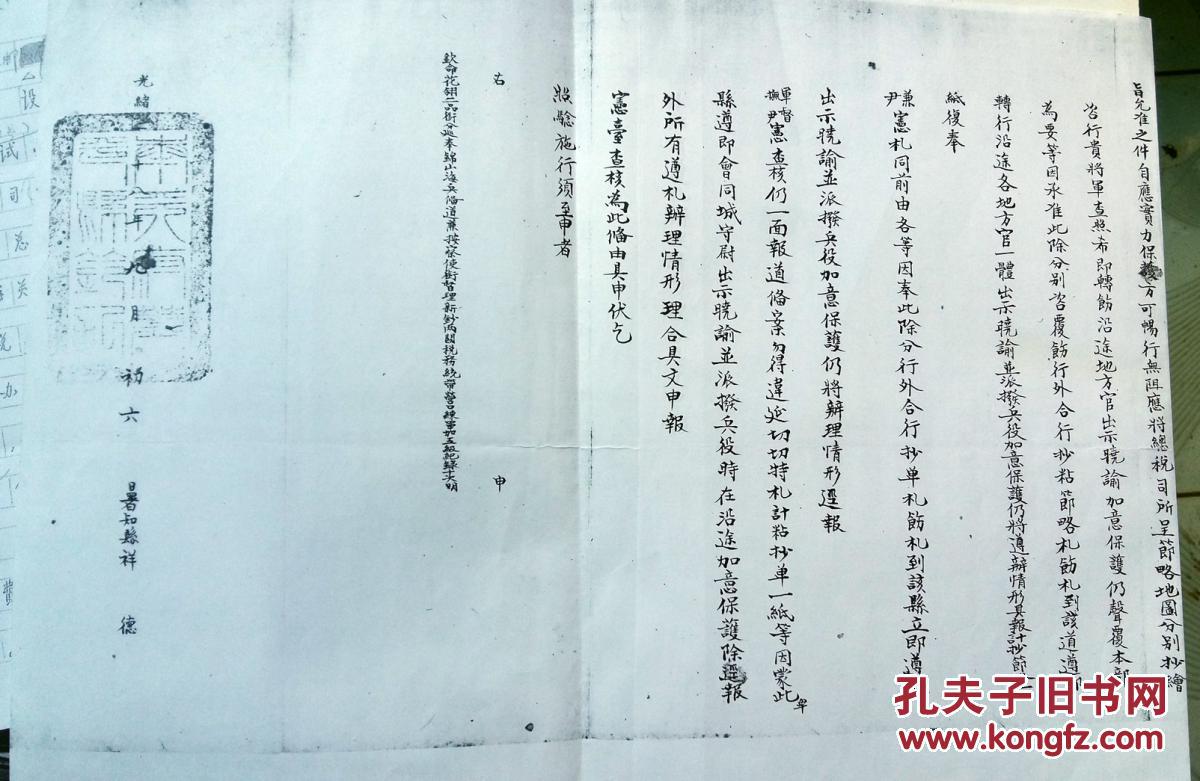 旨允准之件自應實力保護方可暢行無阻應將總稅司所呈節略地圖分別抄繪
咨行貴將軍查照希即轉飭沿途地方官出示曉諭加意保護仍聲覆本部
為要等因承准此除分別咨覆飭行外合行抄粘節略札飭札到該道遵即
轉行沿途各地方官一體出示曉諭並派撥兵役加意保護仍將遵辦情形具報計抄節略一
紙復奉
兼尹憲札同前由各等因奉此除分行外合行抄单札飭札到該縣立即遵
出示曉諭並派撥兵役加意保護仍將辦理情形逕報
軍督撫尹憲查核仍一面報道俻案勿得違延切切特札計粘抄单一紙等因蒙此卑
縣遵即會同城守尉出示曉諭並派撥兵役時在沿途加意保護除逕報
外所有遵札辦理情形理合具文申報
憲臺查核為此俻由具申伏乞
照驗施行須至申者
右 申
欽命花翎二品銜分巡奉錦山海兵俻道兼按察使銜督理新鈔兩關稅務統帶營口練軍加五級紀錄十次明
光緒 年九月初六 署知縣祥 德
孔夫子旧书网
www.kongfz.com